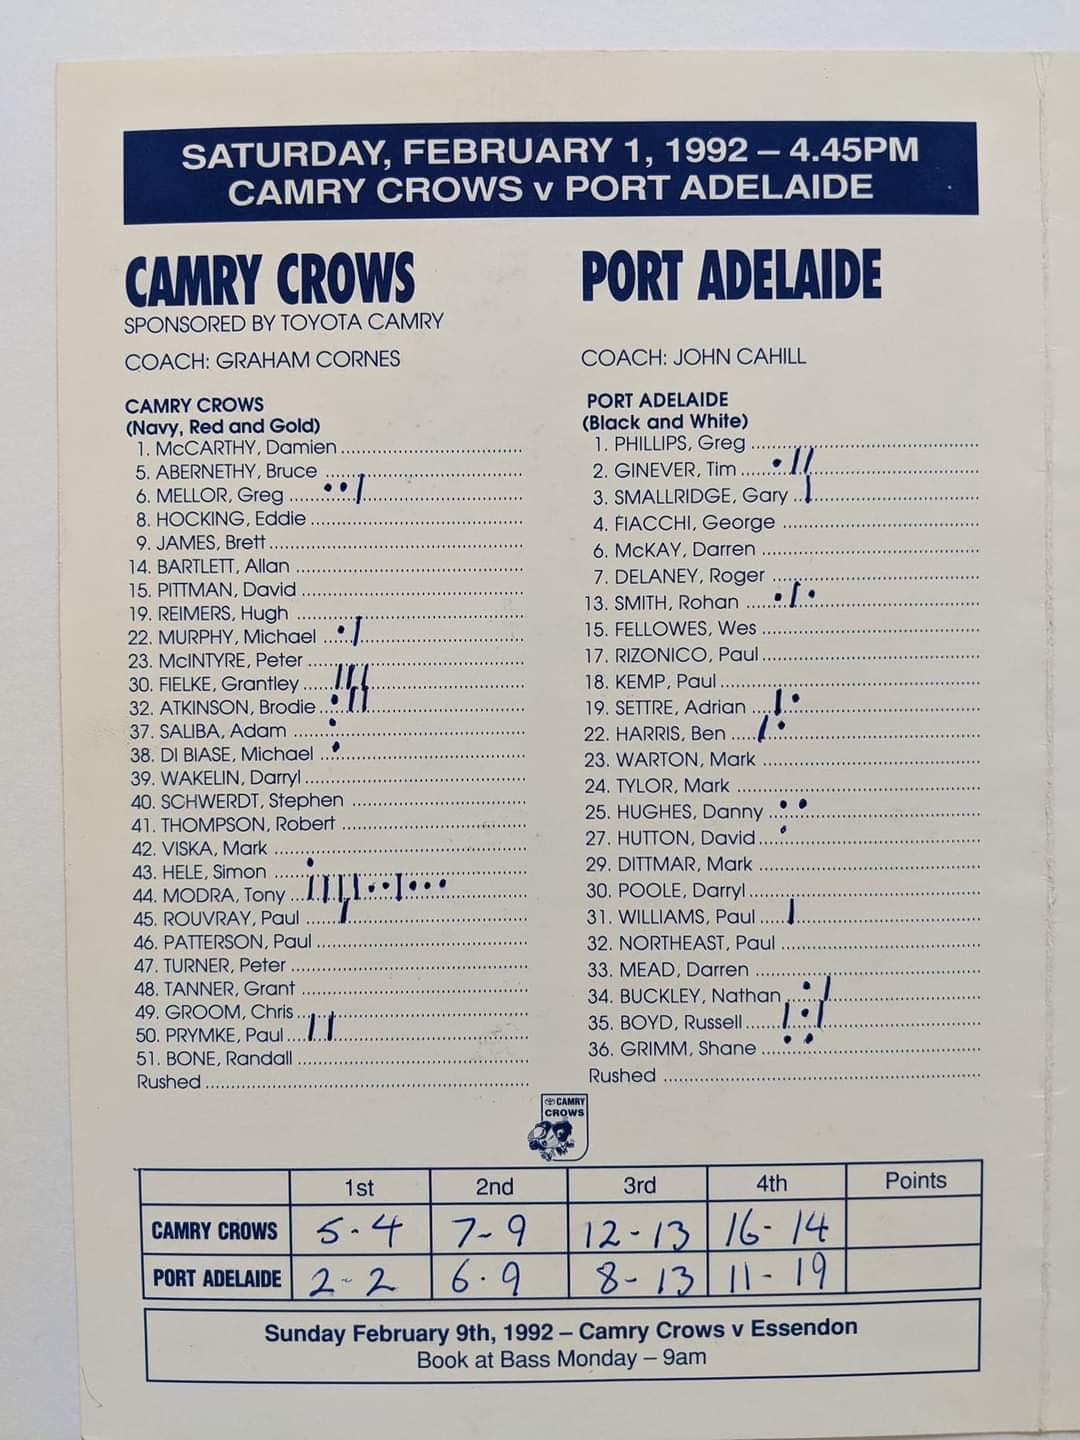 SATURDAY, FEBRUARY 1, 1992 – 4.45PM
CAMRY CROWS v PORT ADELAIDE
CAMRY CROWS
SPONSORED BY TOYOTA CAMRY
COACH: GRAHAM CORNES
CAMRY CROWS
(Navy, Red and Gold)
1. McCARTHY, Damien
5. ABERNETHY, Bruce
6. MELLOR, Greg
8. HOCKING, Eddie
9. JAMES, Brett
14. BARTLETT, Allan
15. PITTMAN, David
19. REIMERS, Hugh
22. MURPHY, Michael
23. McINTYRE, Peter
30. FIELKE, Grantley
32. ATKINSON, Brodie
37. SALIBA, Adam
38. DI BIASE, Michael
39. WAKELIN, Darryl
40. SCHWERDT, Stephen
41. THOMPSON, Robert
42. VISKA, Mark
43. HELE, Simon
44. MODRA, Tony
45. ROUVRAY, Paul
46. PATTERSON, Paul
47. TURNER, Peter
48. TANNER, Grant
49. GROOM, Chris
50. PRYMKE, Paul
51. BONE, Randall
Rushed
PORT ADELAIDE
COACH: JOHN CAHILL
PORT ADELAIDE
(Black and White)
1. PHILLIPS, Greg
2. GINEVER, Tim
3. SMALLRIDGE, Gary
4. FIACCHI, George
6. McKAY, Darren
7. DELANEY, Roger
13. SMITH, Rohan
15. FELLOWES, Wes
17. RIZONICO, Paul
18. KEMP, Paul
19. SETTRE, Adrian
22. HARRIS, Ben
23. WARTON, Mark
24. TYLOR, Mark
25. HUGHES, Danny
27. HUTTON, David
29. DITTMAR, Mark
30. POOLE, Darryl
31. WILLIAMS, Paul
32. NORTHEAST, Paul
33. MEAD, Darren
34. BUCKLEY, Nathan
35. BOYD, Russell
36. GRIMM, Shane
Rushed
CAMRY
CROWS
1st 2nd 3rd 4th Points
CAMRY CROWS 5-4 7-9 12-13 16-14
PORT ADELAIDE 2-2 6-9 8-13 11-19
Sunday February 9th, 1992 – Camry Crows v Essendon
Book at Bass Monday – 9am